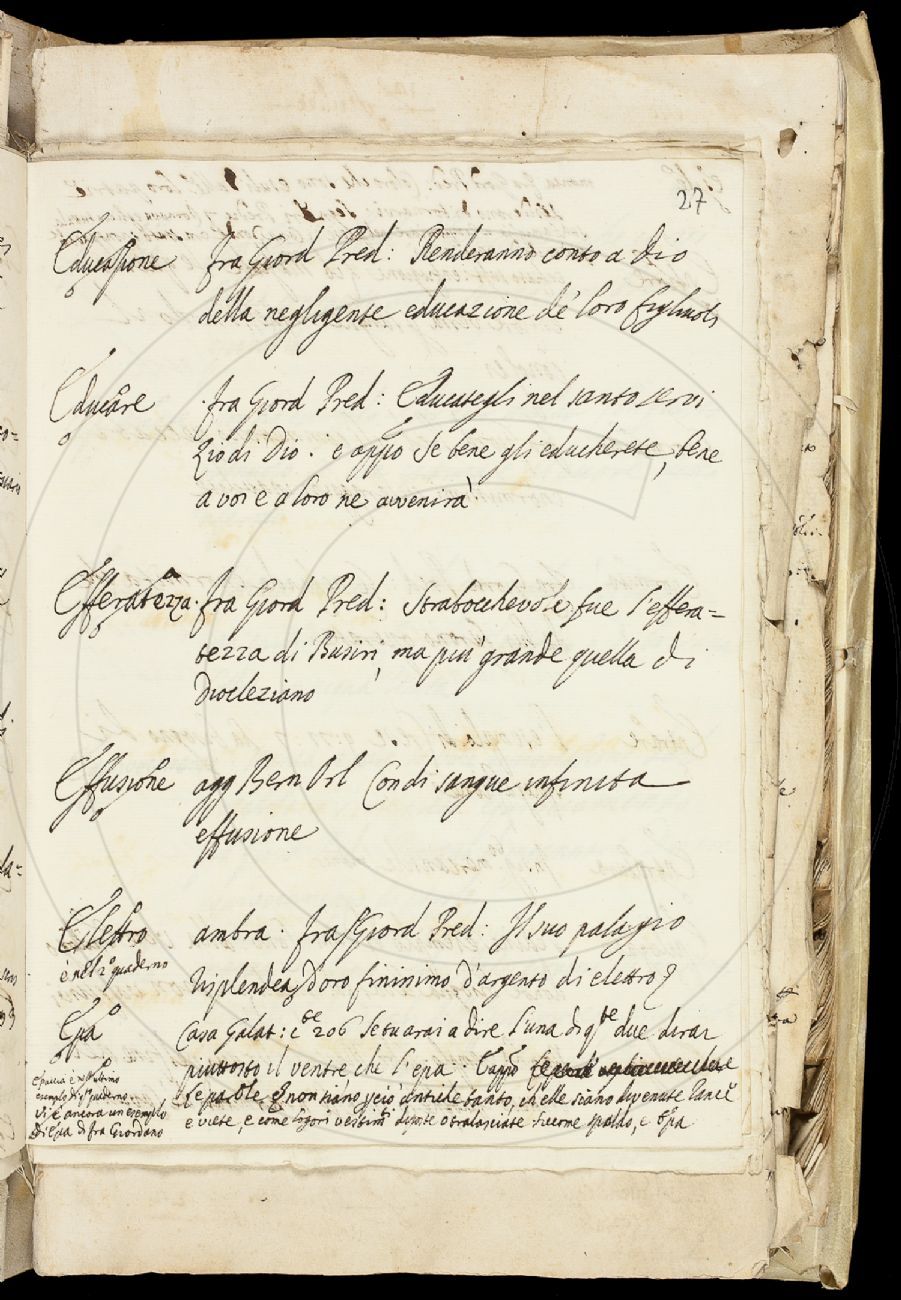 27
Educazione fra Giord Pred: Renderanno conto a Dio
della negligente educazione de' loro figliuoli
Educare fra Giord Pred: Educategli nel santo servi
zio di Dio. e appo Se bene gli educherete, bene
a voi e a loro ne avvenirà
Efferatezza. fra Giord Pred: Strabocchevole fue l'effera=
tezza di Busiri, ma più grande quella di
Diocleziano
Effusione agg Bern Orl Con di sangue infinita
effusione
Elettro ambra. fra Giord Pred: Il suo palagio
è nel 2º quaderno
risplendea d'oro finissimo d'argento di elettro
Epa Casa Galat: c 206 Se tu arai a dire l'una di qste due dirai
piuttosto il ventre che l'epa. E appo
le parole non siano però antiche tanto, ch'elle siano divenute
e viete, e come logori vestim.ti diposte o tralasciate siccome spaldo, e Epa
esemplo di quaderno
Vi è ancora un esemplo
di Epa di fra Giordano